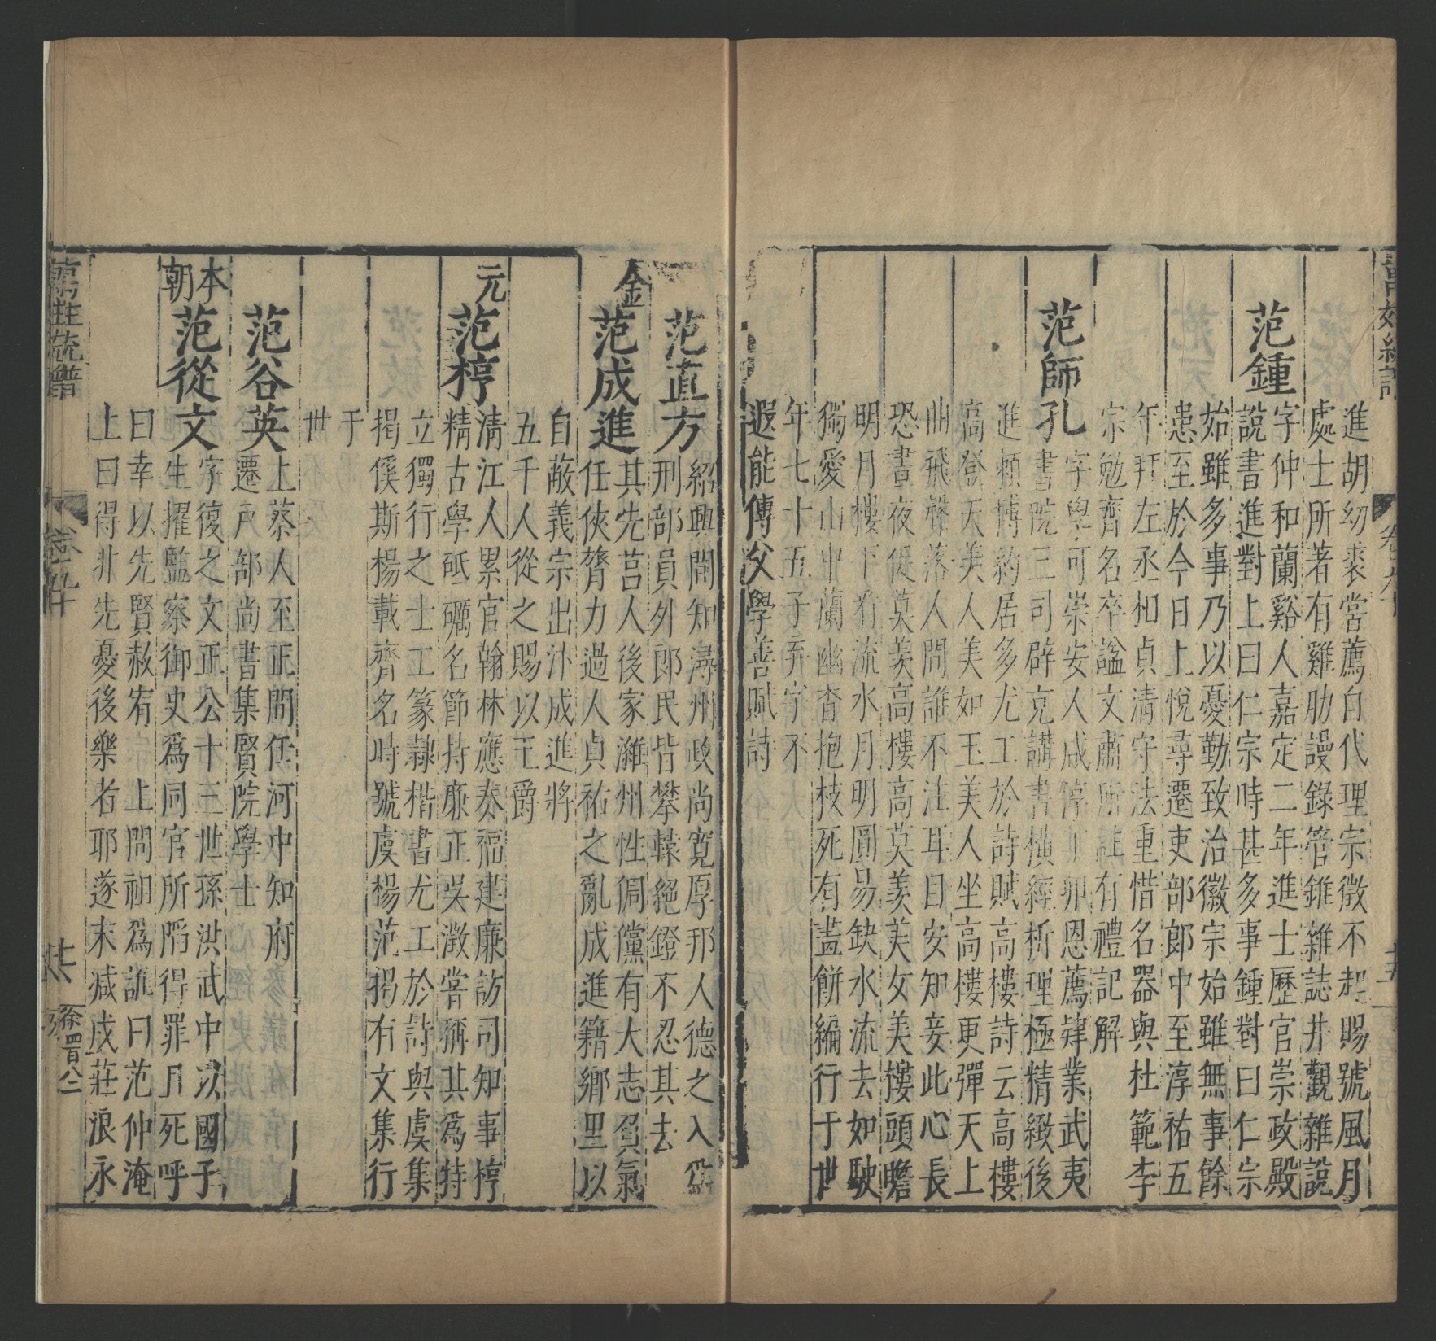 進胡幼裘嘗薦自代理宗徵不起賜號風月
處士所著有雞肋謾錄管錐雜誌井觀雜說
范鍾
字仲和蘭谿人嘉定二年進士歷官崇政殿
說書進對上曰仁宗時甚多事鍾對曰仁宗
始雖多事乃以憂勤致治徽宗始雖無事餘
患至於今日上悅尋遷吏部郎中至淳祐五
年拜左丞相貞清守法重惜名器與杜範李
宗勉齊名卒謚文肅所註有禮記解
范師孔
字學可崇安人成淳丁卯恩薦肄業武夷
書院三司辟充講書橫經析理極情緻後
進頼博約居多尤工於詩賦高樓詩云高樓
高登天美人美如玉美人坐高樓更彈天上
曲飛聲落人間誰不注耳日安知妾此心長
恐晝夜促莫羡高樓高莫羡美女美樓頭瞻
明月樓下看流水月明圓易缺水流去如駛
獨愛山中蘭幽杳抱枝死有晝餅編行于世
年七十五子弄字不
遐能傳父學善賦詩
范直方
紹興間知潯州政尚寬厚邢人德之入為
刑部員外郎民皆攀轅絕鐙不忍其去
金
范成進
其先莒人後家濰州性倜儻有大志負氣
任俠膂力過人貞祐之亂成進籍鄉里以
自蔽義宗出汴成進將
五千人從之賜以王爵
元
范梈
清江人累官翰林應奉福建廉訪司知事梈
精古學砥礪名節持廉正吳澂嘗稱其為特
立獨行之士工篆隸楷書尤工於詩與虞集
揭傒斯楊載齊名時號虞楊范揭有文集行
于
世
范谷英
上蔡人至正間任河中知府
遷戸部尚書集賢院學士
本朝
范從文
字復之文正公十三世孫洪武中以國子
生擢監察御史為同官所陷得罪月死呼
曰幸以先賢赦宥上問祖為誰曰范仲淹
上曰得非先憂後樂者耶遂末減戍莊浪永
萬姓統譜